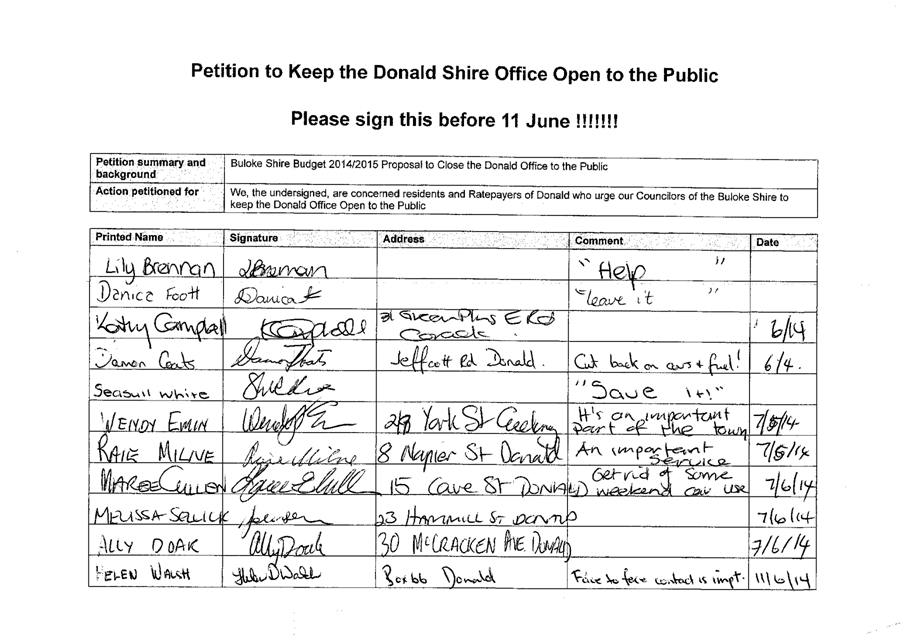 Petition to Keep the Donald Shire Office Open to the Public
Please sign this before 11 June !!!!!!!
Petition summary and background Buloke Shire Budget 2014/2015 Proposal to Close the Donald Office to the Public
Action petitioned for We, the undersigned, are concerned residents and Ratepayers of Donald who urge our Councilors of the Buloke Shire to
keep the Donald Office Open to the Public
Printed Name Signature Address Comment Date
Lily Brennan LBrennan "Help"
Danica Foott Danica F "leave it"
Kathy Campbell 31 6/14
Damon Coats Jeffcott Rd Donald. Cut back on cars + fuel! 6/4.
Seasull white "Save it!"
WENDY EMIN York St It's an important
part of the town 7/6/14
RAIE MILNE Raie Milne 8 Napier St Donald An important
Service 7/6/14
MAREE CULLEN 15 Cave St DONALD Get rid of some
weekend car use 7/6/14
MELISSA SELLICK 23 HAMMILL ST DONALD 7/6/14
ALLY DOAK Ally Doak 30 McCRACKEN AVE. DONALD 7/6/14
HELEN WALSH Helen D Walsh Box 66 Donald Face to face contact is impt. 11/6/14